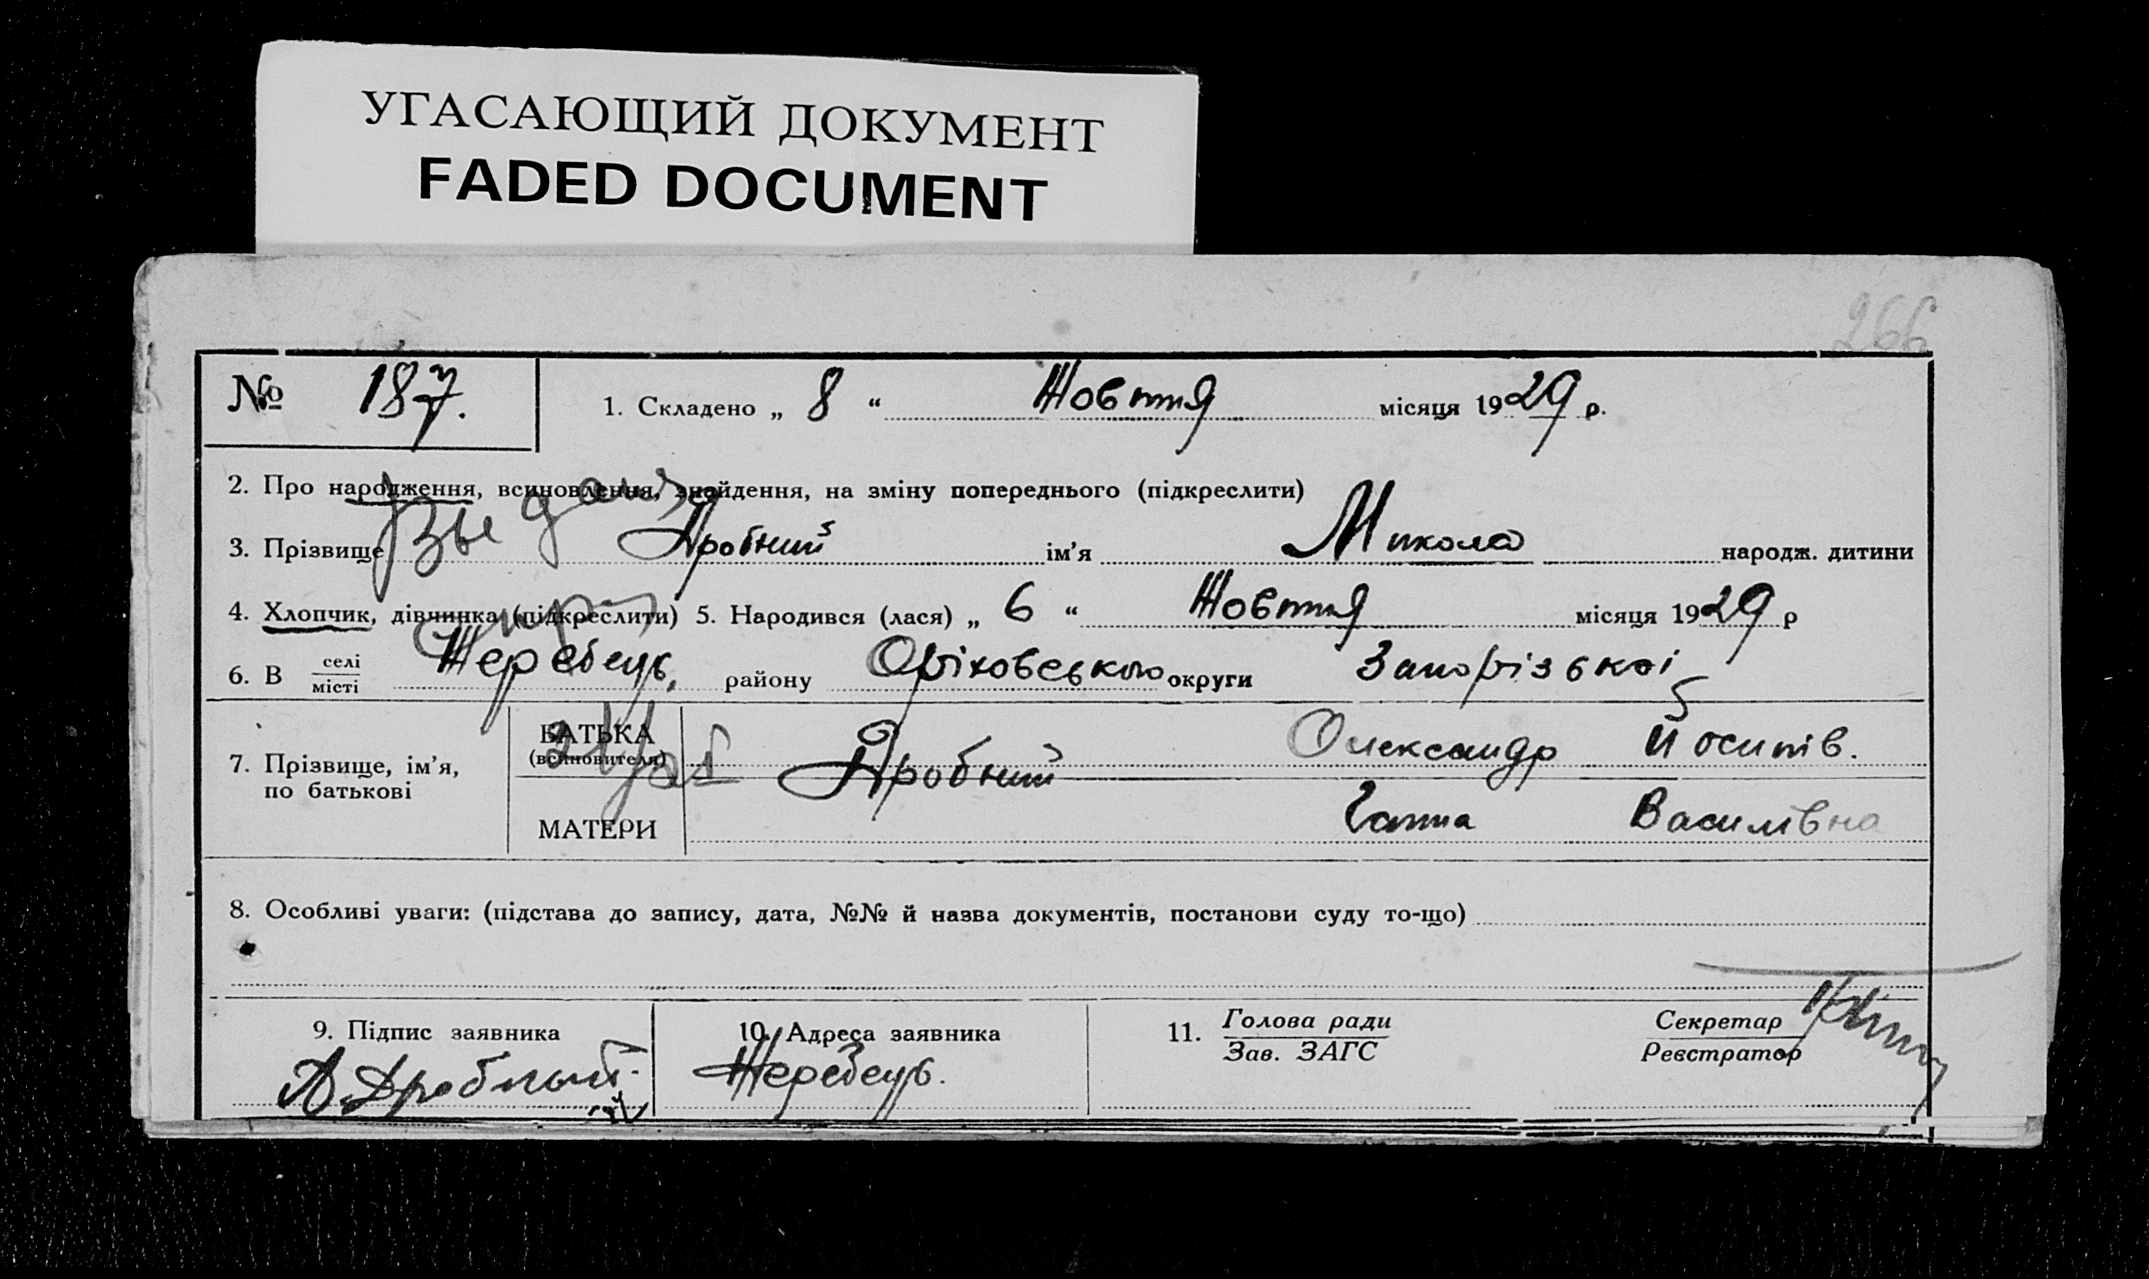 УГАСАЮЩИЙ ДОКУМЕНТ
FADED DOCUMENT
266
№ 187. 1. Складено „ 8 “ Жовтня місяця 1929 р.
2. Про народження, всиновлення, знайдення, на зміну попереднього (підкреслити)
3. Прізвище Дробний ім'я Микола народж. дитини
4. Хлопчик, дівчинка (підкреслити) 5. Народився (лася) „ 6 “ Жовтня місяця 1929 р
6. В селі місті Жеребець, району Оріховського округи Запорізької
7. Прізвище, ім'я, по батькові
БАТЬКА (всиновителя) Дробний Олександр Йосипів.
МАТЕРИ Ганна Василівна
8. Особливі уваги: (підстава до запису, дата, №№ й назва документів, постанови суду то-що)
9. Підпис заявника 10. Адреса заявника 11. Голова ради Зав. ЗАГС Секретар Реєстратор
А. Дробный Жеребець.